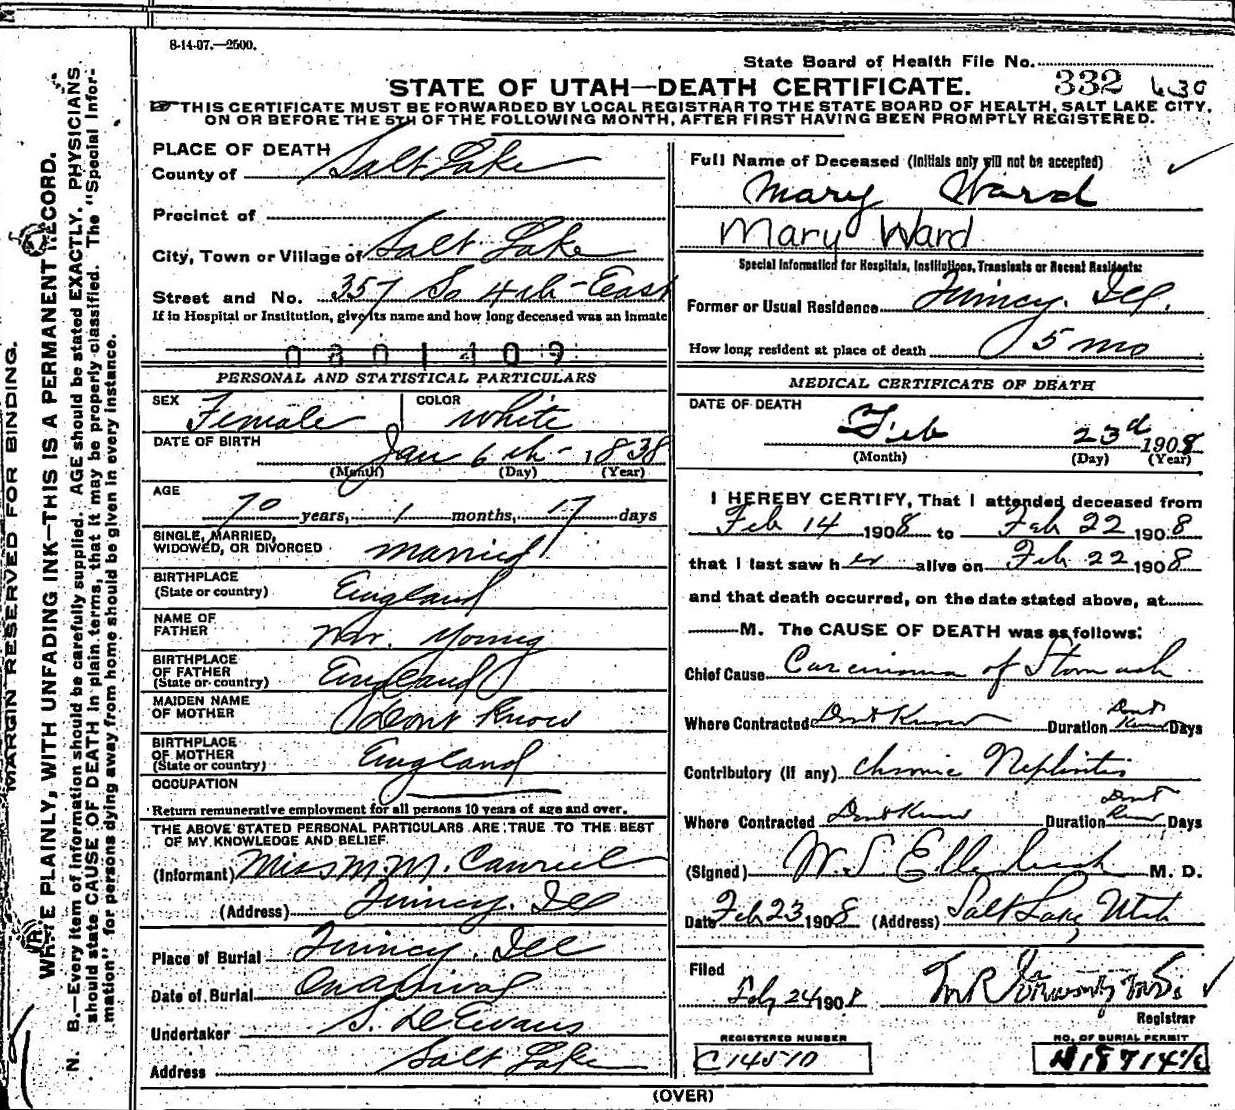 8-14-07.—2500.
State Board of Health File No. 332 630
STATE OF UTAH—DEATH CERTIFICATE.
THIS CERTIFICATE MUST BE FORWARDED BY LOCAL REGISTRAR TO THE STATE BOARD OF HEALTH, SALT LAKE CITY,
ON OR BEFORE THE 5TH OF THE FOLLOWING MONTH, AFTER FIRST HAVING BEEN PROMPTLY REGISTERED.
MARGIN RESERVED FOR BINDING.
WRITE PLAINLY, WITH UNFADING INK—THIS IS A PERMANENT RECORD.
N. B.—Every item of information should be carefully supplied. AGE should be stated EXACTLY. PHYSICIANS
should state CAUSE OF DEATH in plain terms, that it may be properly classified. The "Special Infor-
mation" for persons dying away from home should be given in every instance.
PLACE OF DEATH
County of Salt Lake
Precinct of
City, Town or Village of Salt Lake
Street and No. 357 So 4th East
If in Hospital or Institution, give its name and how long deceased was an inmate
0801409
PERSONAL AND STATISTICAL PARTICULARS
SEX Female COLOR White
DATE OF BIRTH Jan 6th 1838
(Month) (Day) (Year)
AGE
70 years, 1 months, 17 days
SINGLE, MARRIED,
WIDOWED, OR DIVORCED married
BIRTHPLACE
(State or country) England
NAME OF
FATHER Wm. Young
BIRTHPLACE
OF FATHER
(State or country) England
MAIDEN NAME
OF MOTHER Dont Know
BIRTHPLACE
OF MOTHER
(State or country) England
OCCUPATION
Return remunerative employment for all persons 10 years of age and over.
THE ABOVE STATED PERSONAL PARTICULARS ARE TRUE TO THE BEST
OF MY KNOWLEDGE AND BELIEF
(Informant) Miss M. M.
(Address) Quincy. Ill
Place of Burial Quincy. Ill
Date of Burial On Arrival
Undertaker S. D. Evans
Address Salt Lake
Full Name of Deceased (Initials only will not be accepted)
Mary Ward
Mary Ward
Special Information for Hospitals, Institutions, Transients or Recent Residents:
Former or Usual Residence Quincy. Ill.
How long resident at place of death 5 mo
MEDICAL CERTIFICATE OF DEATH
DATE OF DEATH
Feb 23d 1908
(Month) (Day) (Year)
I HEREBY CERTIFY, That I attended deceased from
Feb 14 1908 to Feb 22 1908
that I last saw her alive on Feb 22 1908
and that death occurred, on the date stated above, at
M. The CAUSE OF DEATH was as follows:
Chief Cause Carcinoma of Stomach
Where Contracted Dont Know Duration Dont Know Days
Contributory (If any) Chronic Nephritis
Where Contracted Dont Know Duration Dont Know Days
(Signed) W. S. Ellerbeck M. D.
Date Feb 23 1908 (Address) Salt Lake, Utah
Filed
Feb 24 1908
Registrar
REGISTERED NUMBER
C14510
NO. OF BURIAL PERMIT
(OVER)